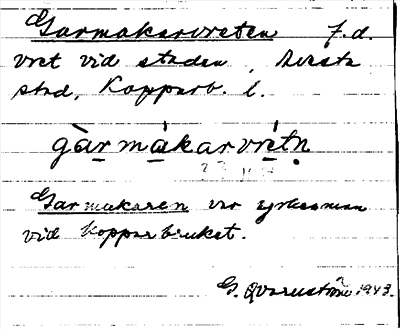 Garmakarvreten f.d.
vret vid staden, Avesta
stad, Kopparb. l.
gàr màkarvrètṇ
Garmakaren var yrkesman
vid kopparbruket.
G. Qvarnström 1943.